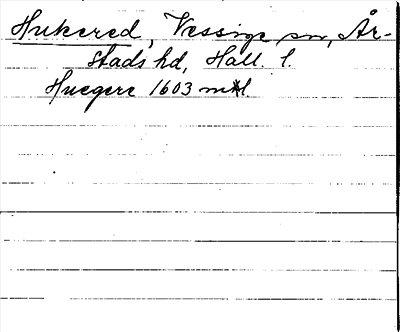 Hukered, Vessige sn, År-
stads hd, Hall. l.
Huegere 1603 mtl